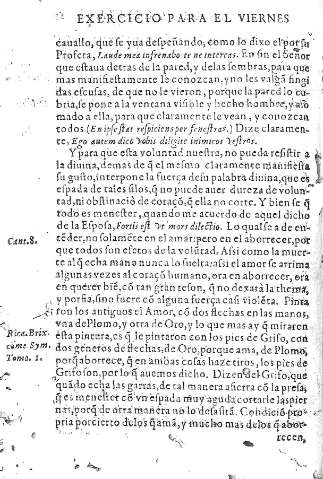 EXERCICIO PARA EL VIERNES
cauallo, que se yua despeñando, como lo dixo el por su
Profeta, Laude mea infrenabo te ne intereas. En fin el Señor
que estaua detras de la pared, y delas sombras, para que
mas manifiestamente le conozcan, y no les valgã fingi
das escusas, de que no le vieron, porque la pared lo cu
bria, se pone a la ventana visible y hecho hombre, y aso
mado a ella, para que claramente le vean, y conozcan
todos (En ipse stat respiciens per fenestras.) Dize claramen-
te, Ego autem dico vobis diligite inimicos vestros.
Y para que esta voluntad nuestra, no pueda resistir a
la diuina, demas de q̃ el mesmo claramente manifiesta
su gusto, interpone la fuerça de su palabra diuina, que es
espada de tales filos, q̃ no puede auer dureza de volun-
tad, ni obstinaciõ de coraçõ, q̃ ella no corte. Y bien se q̃
todo es menester, quando me acuerdo de aquel dicho
Cant. 8.
de la Esposa, Fortis est vt mors dilectio. Lo qual se a de en-
tẽder, no solamẽte en el amar: pero en el aborrecer, por
que todos son efetos de la volũtad. Assi como la muer-
te al q̃ echa mano nunca lo suelta: assi el amor se arrima
algunas vezes al coraçõ humano, ora en aborrecer, ora
en querer biẽ, cõ tan gran teson, q̃ no dexarà la thema,
y porfia, sino fuere cõ alguna fuerça casi violẽta. Pinta
ron los antiguos el Amor, cõ dos flechas en las manos,
vna de Plomo, y otra de Oro, y lo que mas ay q̃ mirar en
Rica. Brix.
come Sym.
Tomo. 1.
esta pintura, es q̃ le pintaron con los pies de Grifo, con
dos generos de flechas, de Oro, porque ama, de Plomo,
porq̃ aborrece, q̃ en ambas cosas haze tiros, los pies de
Grifo son, por lo q̃ auemos dicho. Dizen del Grifo, que
quãdo echa las garras, de tal manera afierra cõ la presa,
q̃ es menester cõ vn espada muy aguda cortarle las pier
nas, porq̃ de otra manera no lo desasirà. Condiciõ pro-
pria por cierto de los q̃ amã, y mucho mas de los q̃ abor-
recen,